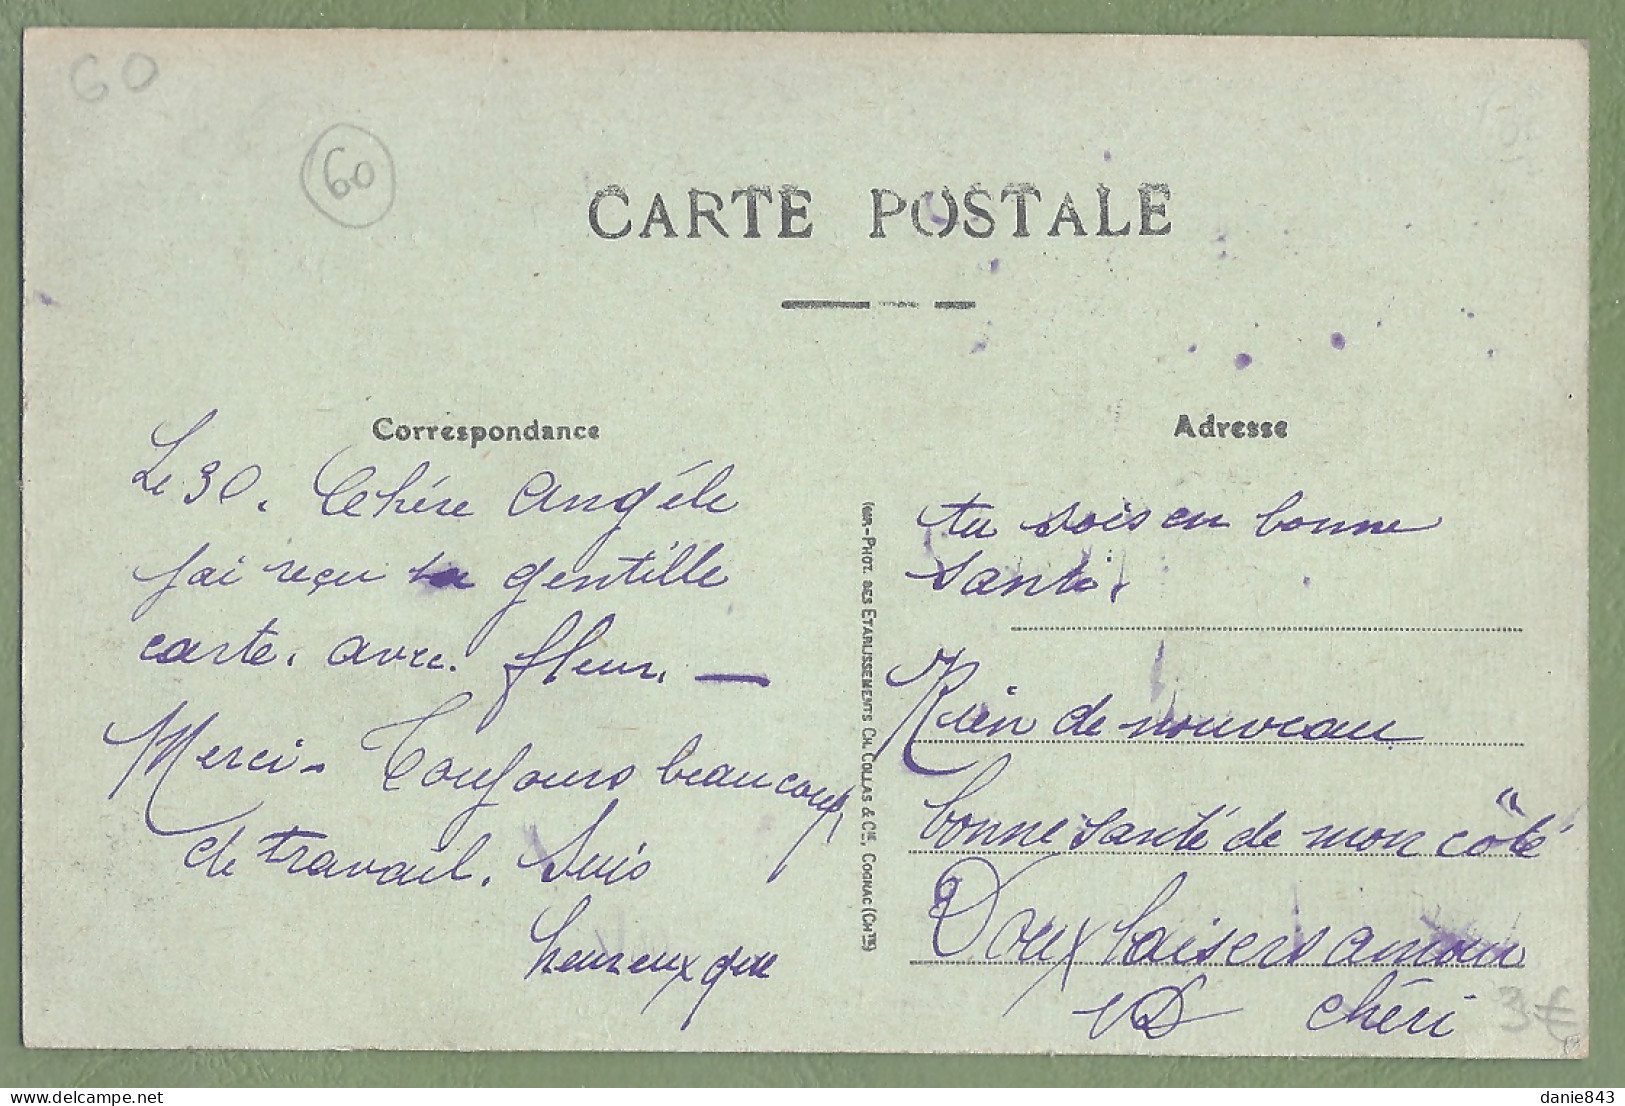 60
60
CARTE POSTALE
Correspondance
Adresse
Le 30. Chére Angéle
J'ai reçu ta gentille
carte. avec. fleur. —
Merci - Toujours beaucoup
de travail. Suis
heureux que
tu sois en bonne
santé.
Rien de nouveau
bonne santé de mon côté
Doux baisers amour
chéri
PHOT. DES ETABLISSEMENTS CH. COLLAS & CIE, COGNAC (CHTE)
3€
danie843